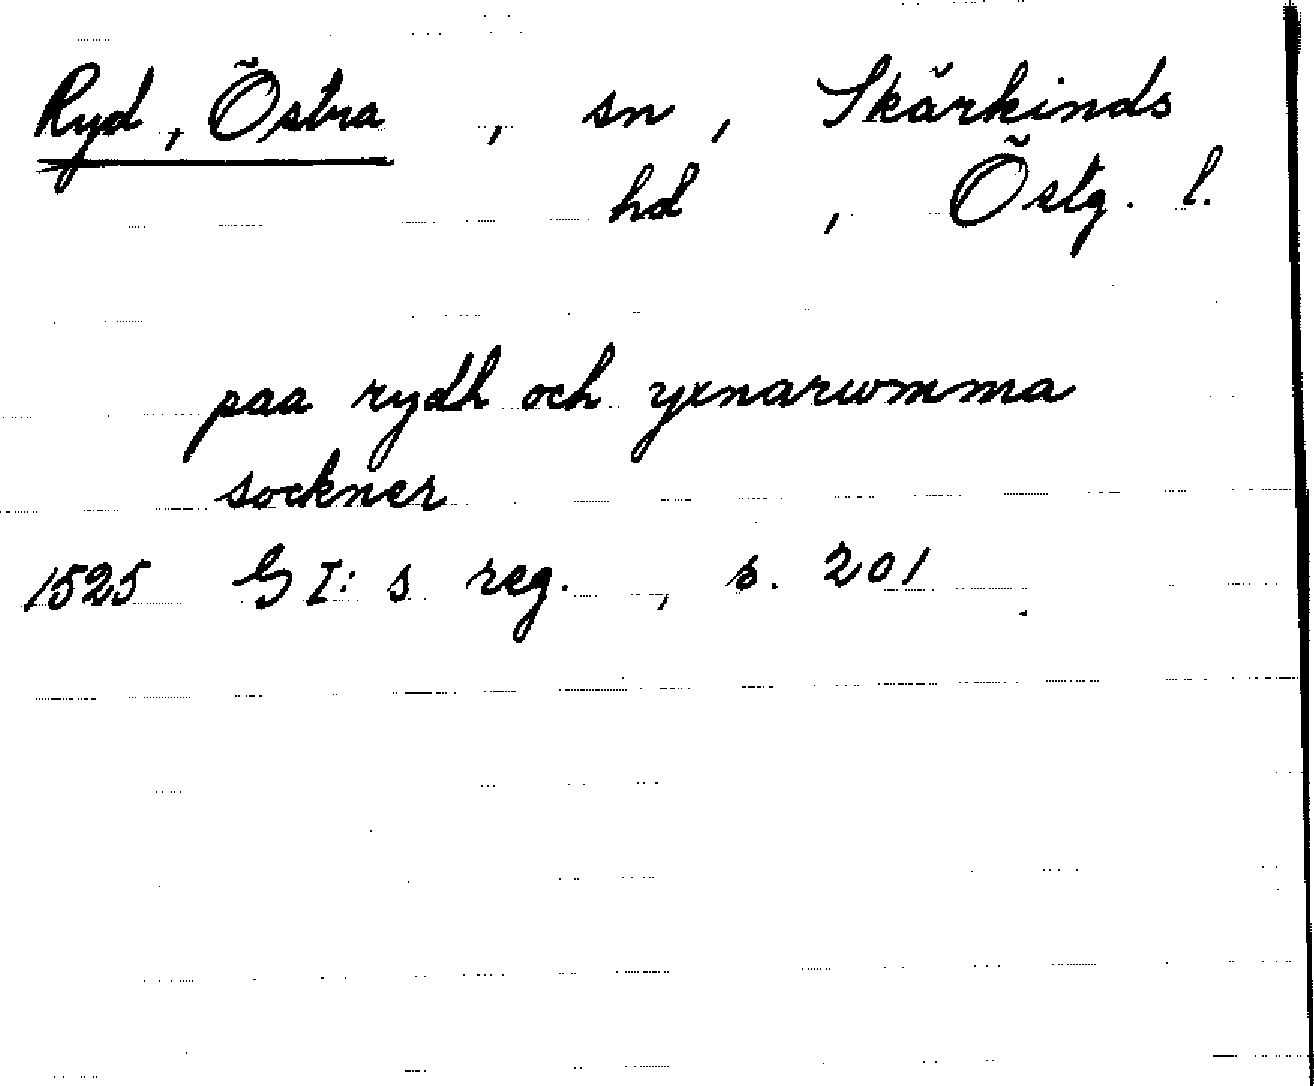 Ryd, Östra, sn, Skärkinds
hd, Östg. l.
paa rydh och yxnarwmma
sockner
1525 G I:s reg., s. 201